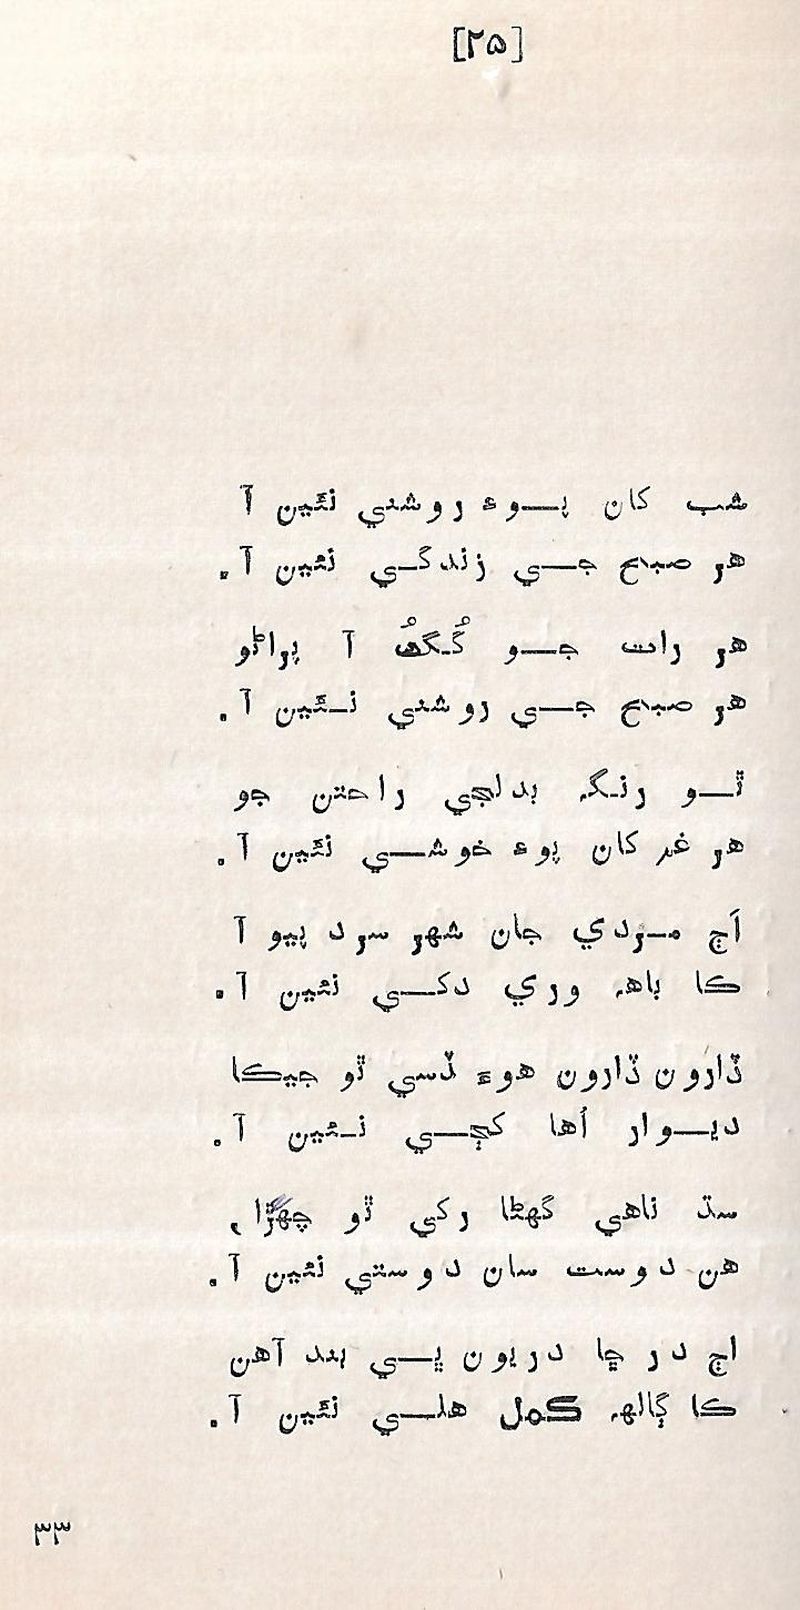 [۲۵]
شب کان پوءِ روشني نئين آ
هر صبح جي زندگي نئين آ.
هر رات جو گُگھُ آ پراڻو
هر صبح جي روشني نئين آ.
ٿو رنگ بدلجي راحتن جو
هر غم کان پوءِ خوشي نئين آ.
اَڄ مردي جان شهر سرد پيو آ
ڪا باهه وري دکي نئين آ.
ڏارون ڏارون هوءَ ڏسي ٿو جيڪا
ديوار اُها کڄي نئين آ.
سڌ ناهي گهڻا رکي ٿو چهڙا،
هن دوست سان دوستي نئين آ.
اڄ در ڇا دريون ڀي بند آهن
ڪا ڳالهه ڪمل هلي نئين آ.
۳۳